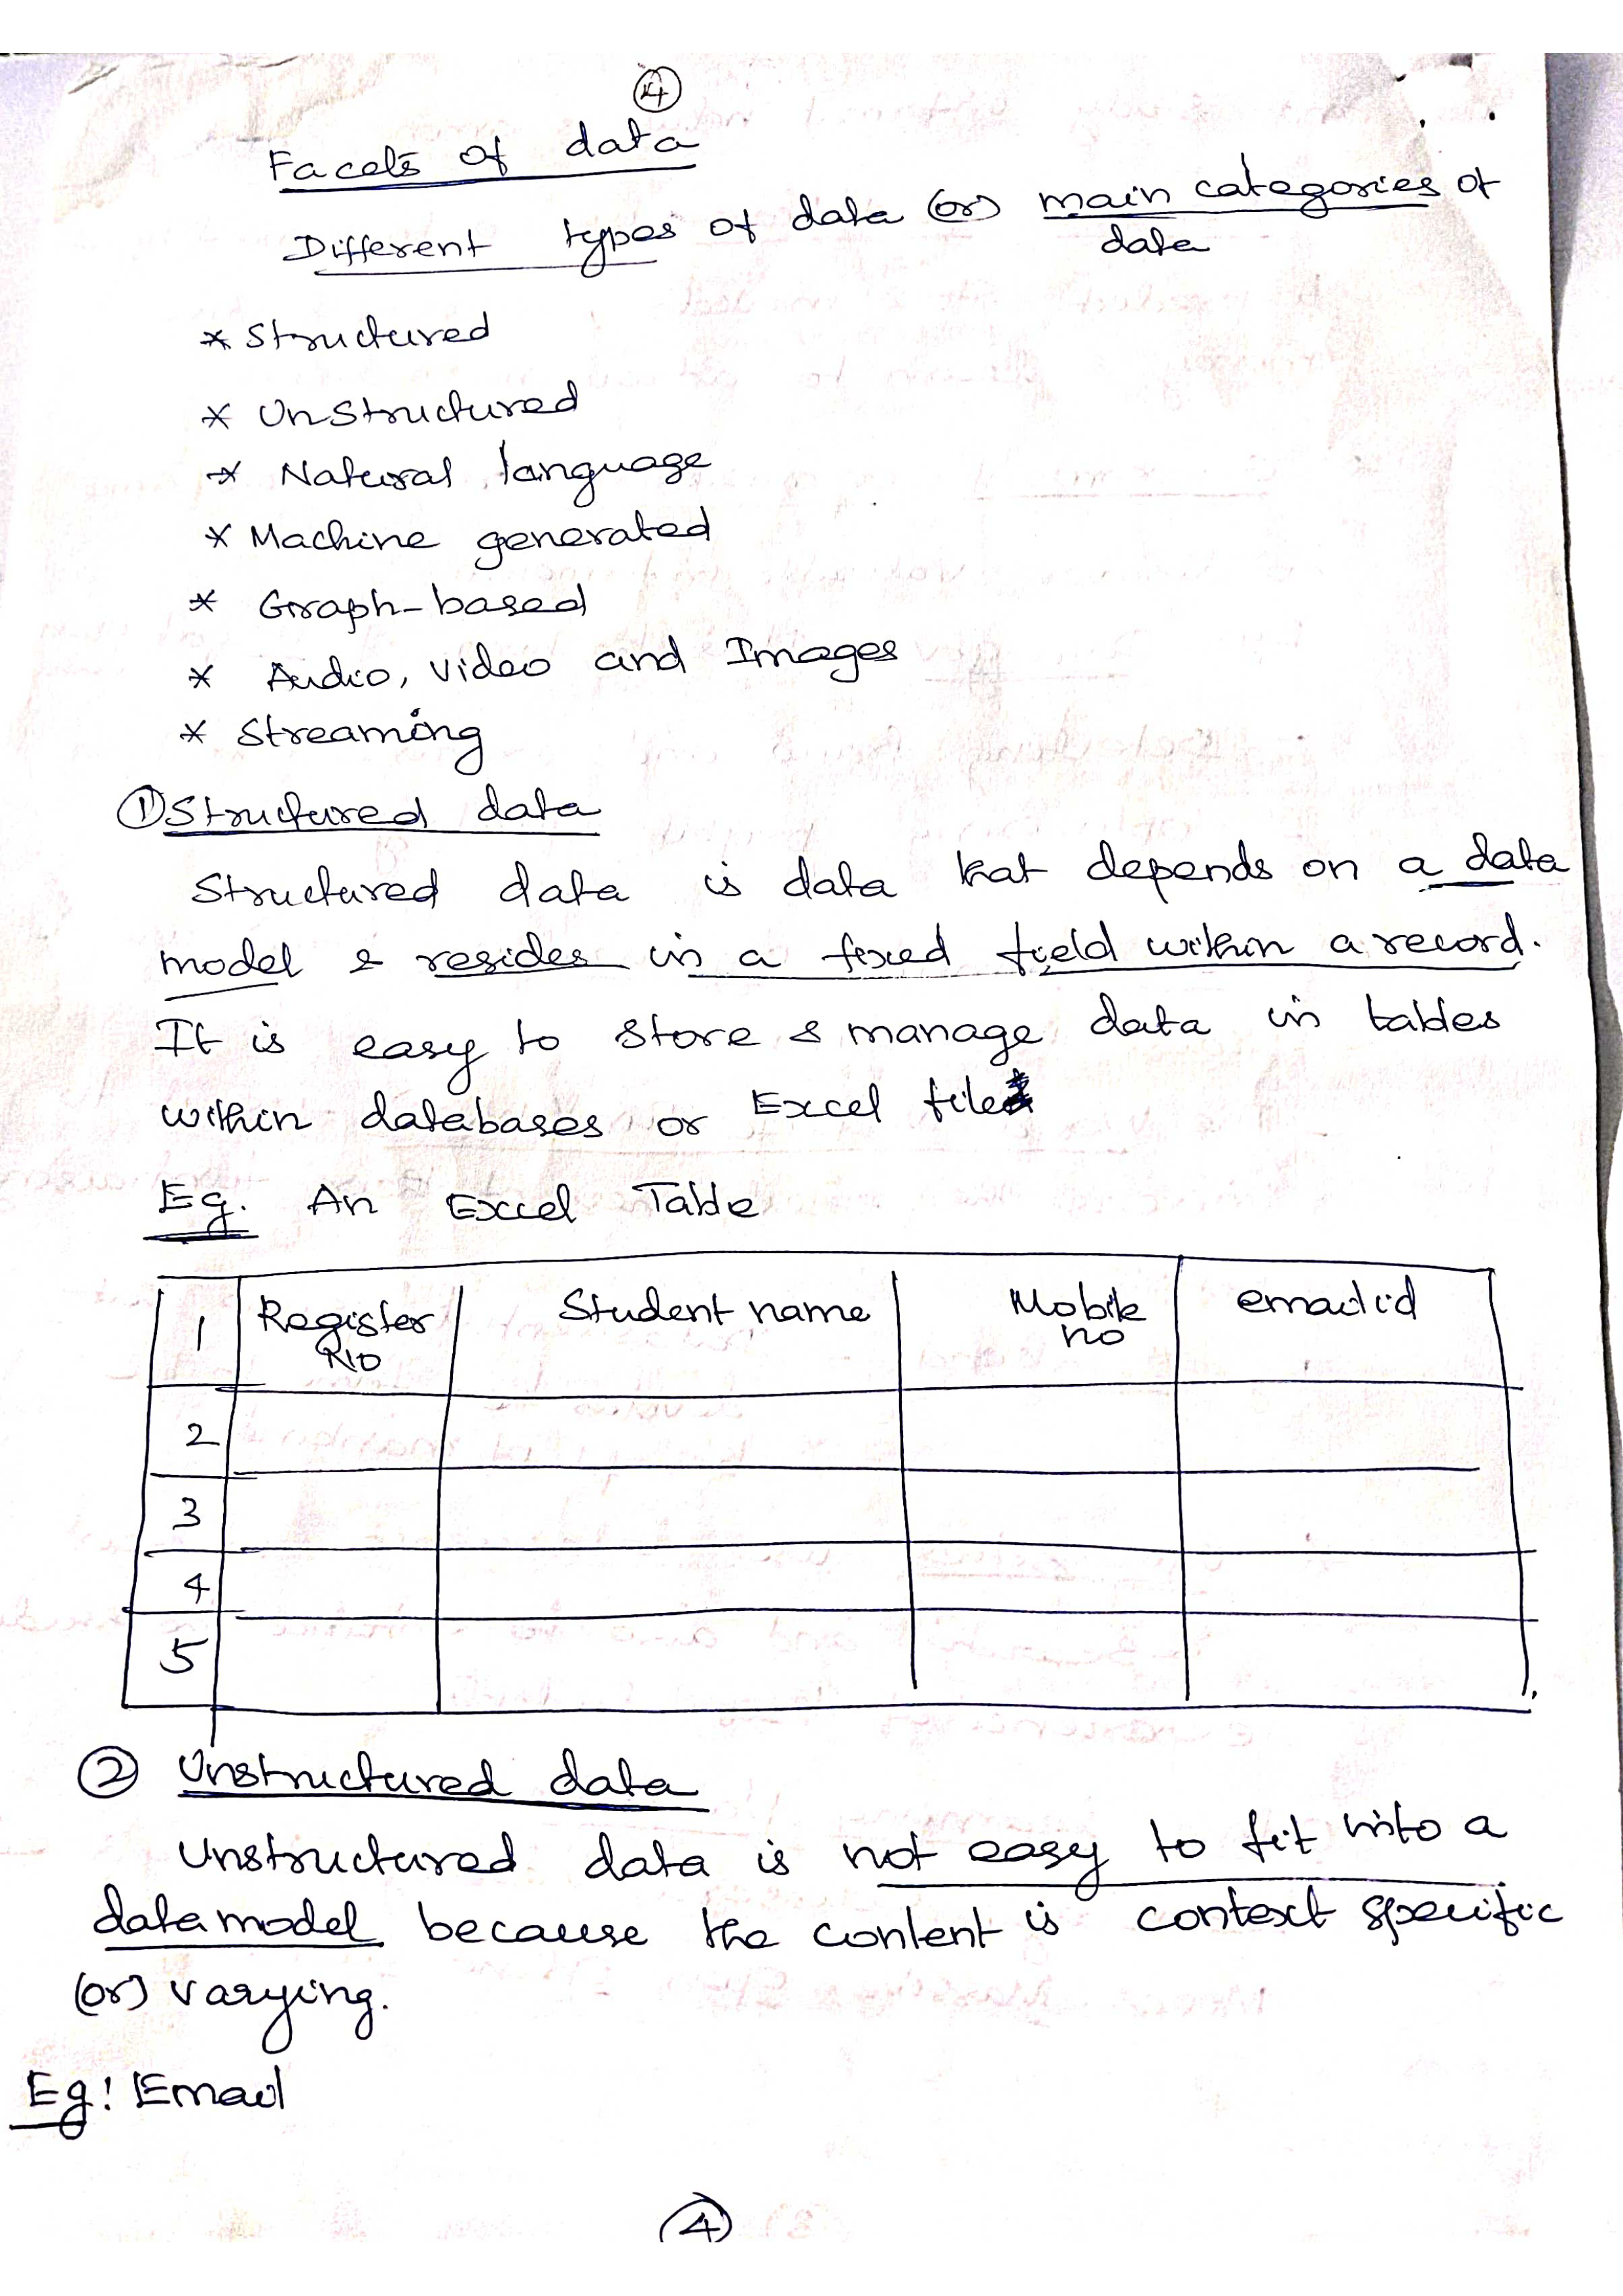 4
Facets of data
Different types of data (or) main categories of
data
* Structured
* Unstructured
* Natural language
* Machine generated
* Graph-based
* Audio, video and Images
* Streaming
① Structured data
Structured data is data that depends on a data
model & resides in a fixed field within a record.
It is easy to store & manage data in tables
within databases or Excel files
Eg. An Excel Table
1 Register Student name Mobile email id
no no
2
3
4
5
② Unstructured data
Unstructured data is not easy to fit into a
data model because the content is context specific
(or) varying.
Eg: Email
4